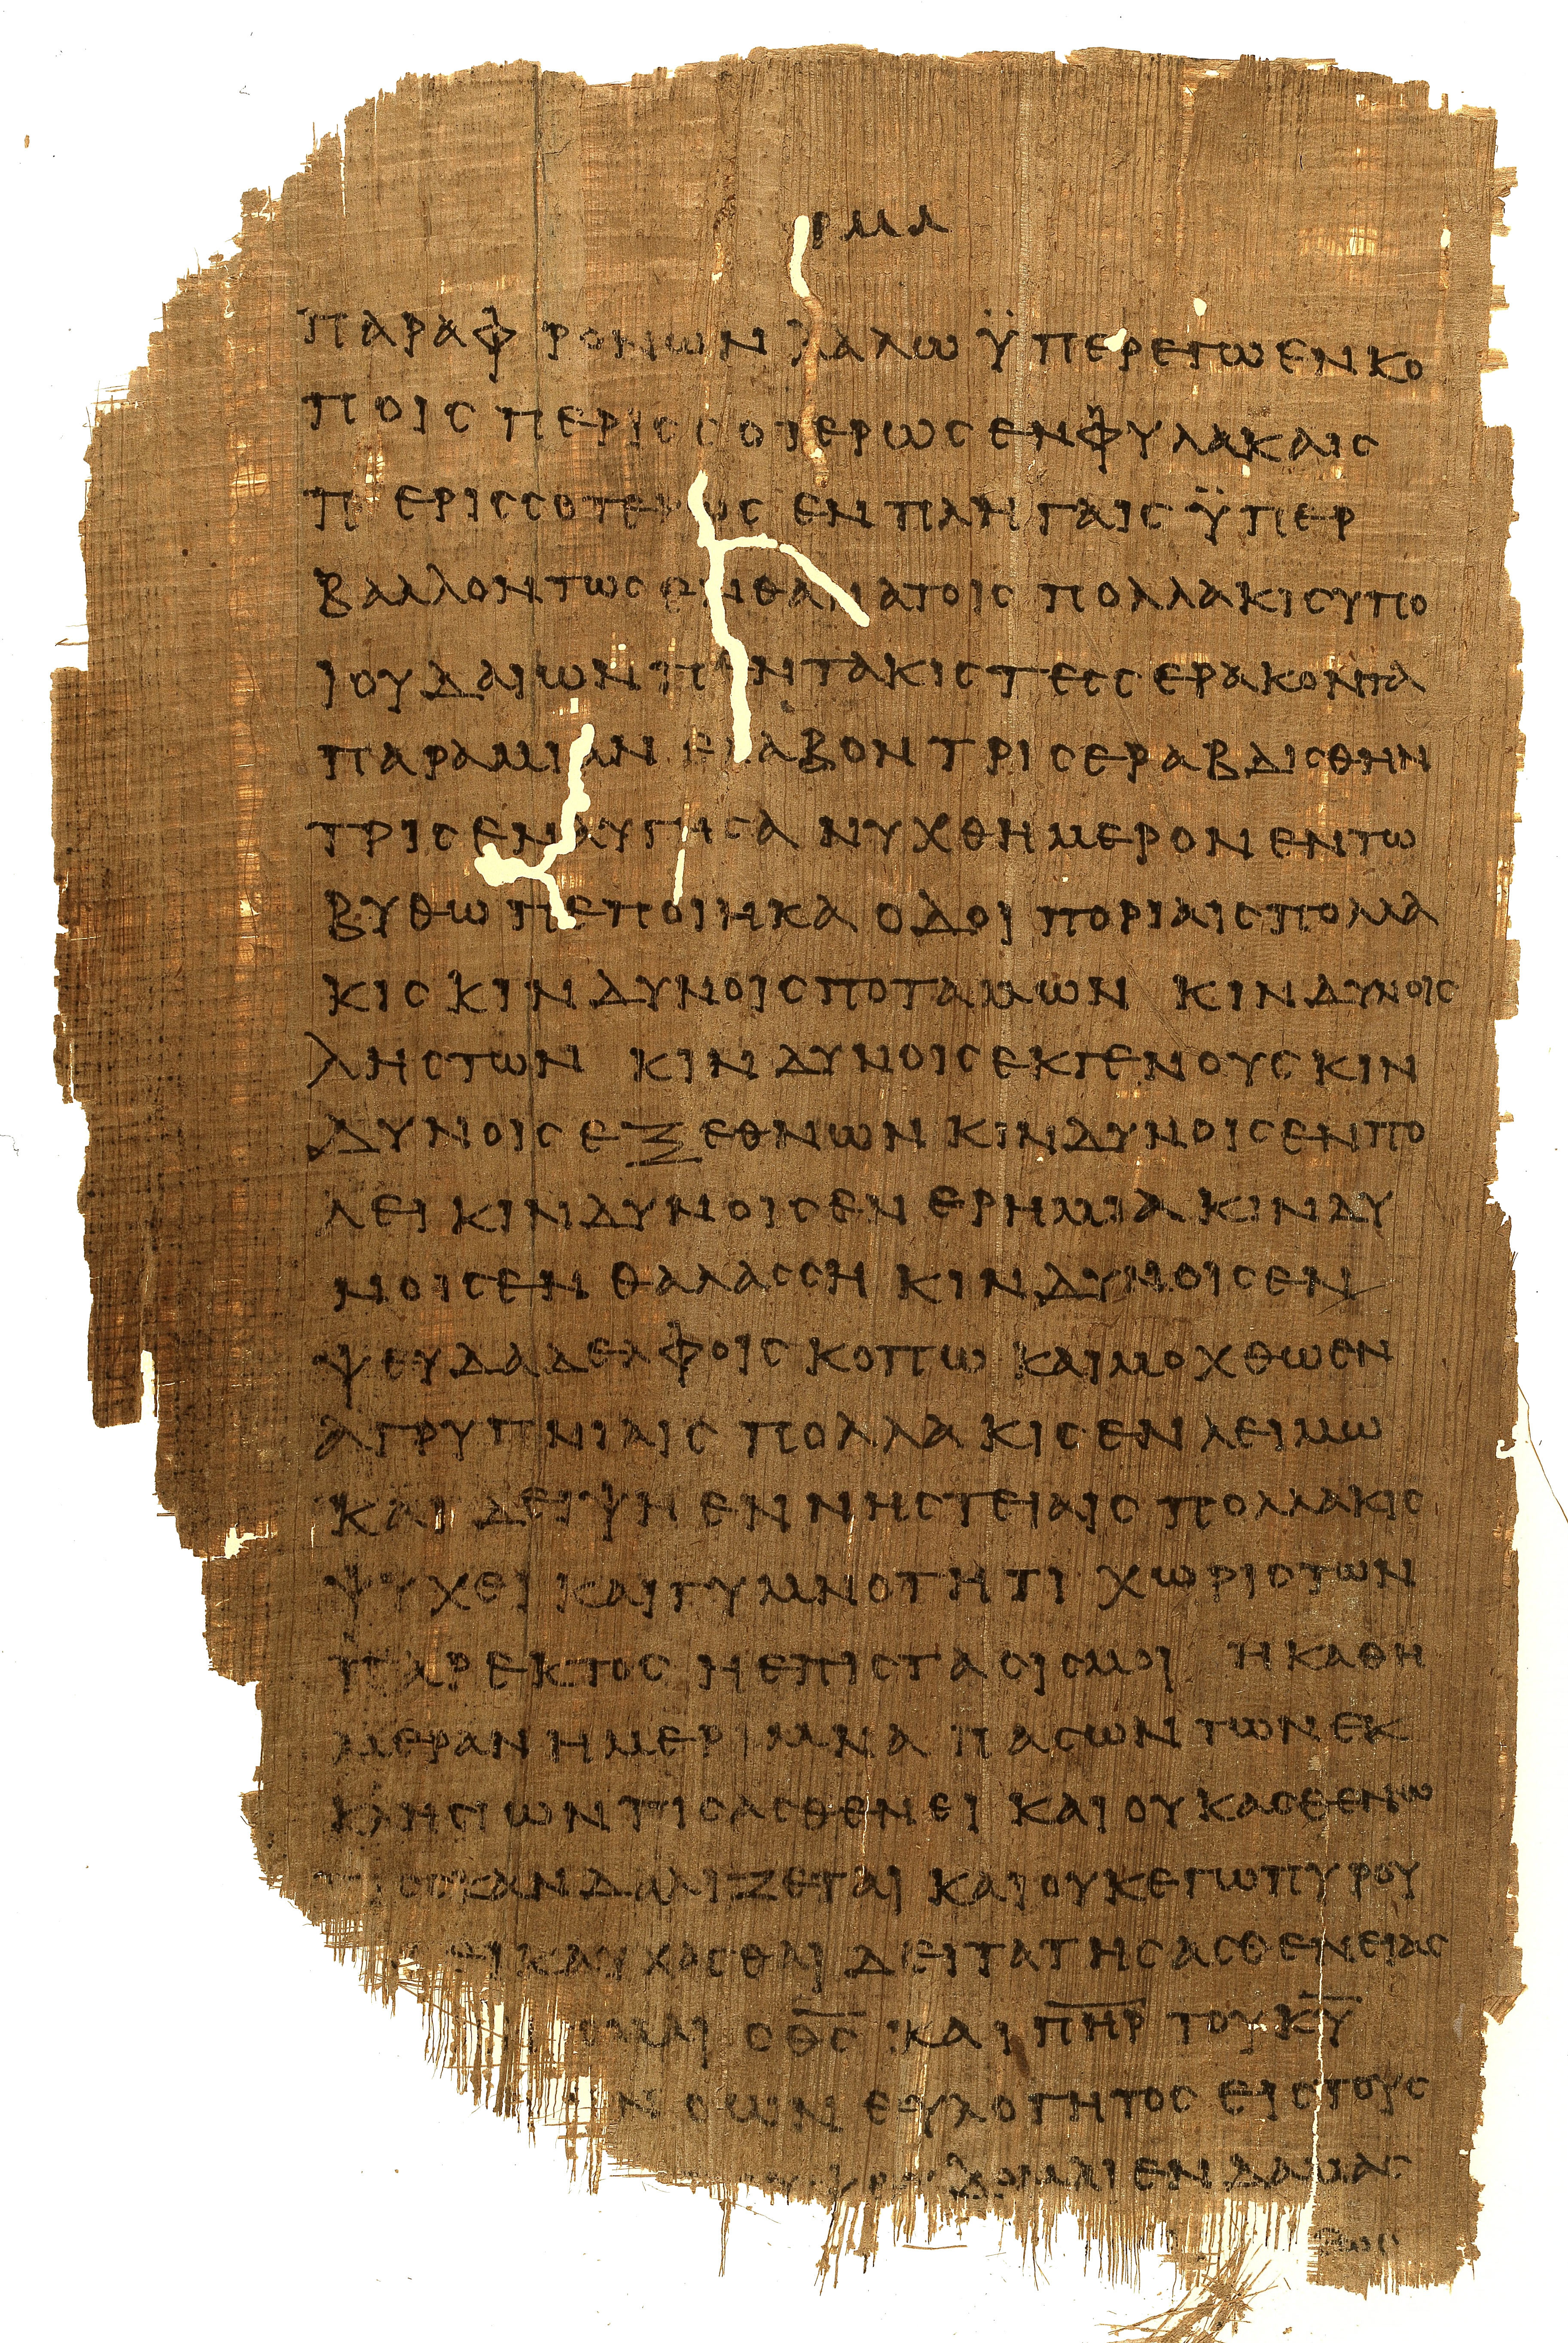 ρμα
παραφρονων λαλω ϋπερεγω εν κο
ποις περισσοτερως εν φυλακαις
περισσοτερως εν πληγαις ϋπερ
βαλλοντως εν θανατοις πολλακις υπο
ιουδαιων πεντακις τεσσερακοντα
παρα μιαν ελαβον τρις εραβδισθην
τρις εναυγησα νυχθημερον εν τω
βυθω πεποιηκα οδοιποριαις πολλα
κις κινδυνοις ποταμων κινδυνοις
ληστων κινδυνοις εκ γενους κιν
δυνοις εξ εθνων κινδυνοις εν πο
λει κινδυνοις εν ερημια κινδυ
νοις εν θαλασση κινδυνοις εν
ψευδαδελφοις κοπω και μοχθω εν
αγρυπνιαις πολλακις εν λειμω
και δειψη εν νηστειαις πολλακις
ψυχει και γυμνοτητι χωρις των
παρεκτος η επιστασις μοι η καθη
μεραν η μεριμνα πασων των εκ
κλησιων τις ασθενει και ουκ ασθενω
τις σκανδαλιζεται και ουκ εγω πυρου
ει καυχασθαι δει τα της ασθενειας
ο θ̅ς̅ και π̅η̅ρ̅ του κ̅υ̅
ο ων ευλογητος εις τους
ψευδομαι εν δαμασ